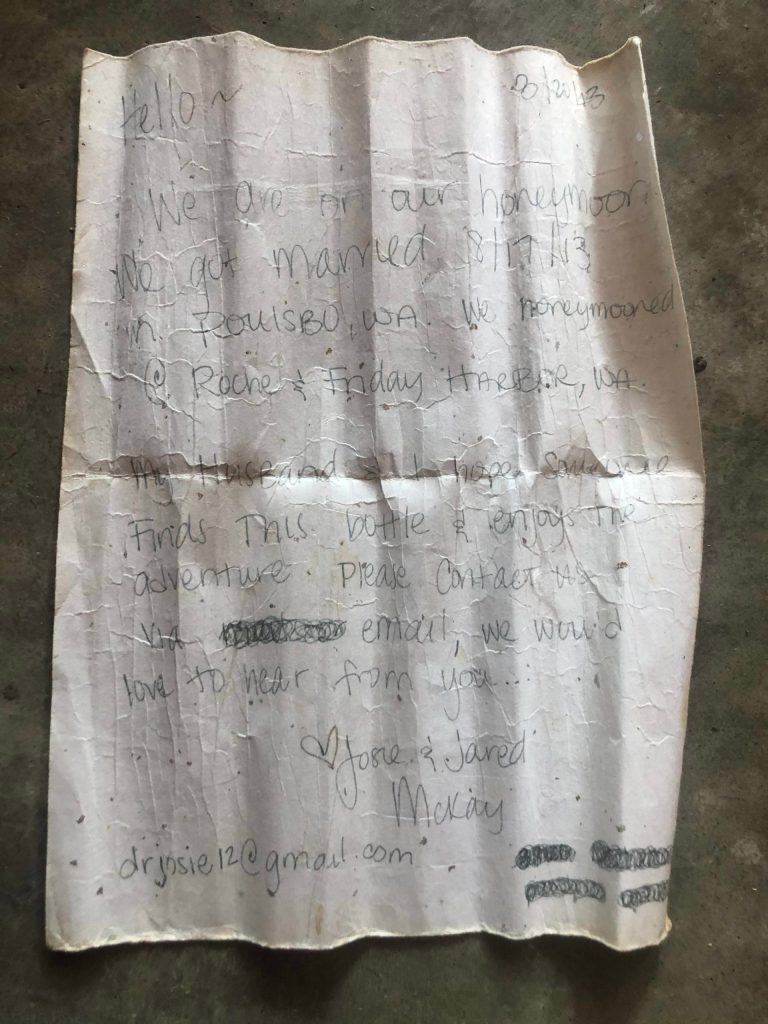 Hello ~ 8/20/13
We are on our honeymoon.
We got married 8/17/13
in POULSBO, WA. We honeymooned
@ Roche & Friday HARBOR, WA.
My Husband & I hope someone
Finds This bottle & enjoys the
adventure. Please Contact us
via email, we would
love to hear from you...
♡ Josie & Jared
McKay
drjosie12@gmail.com